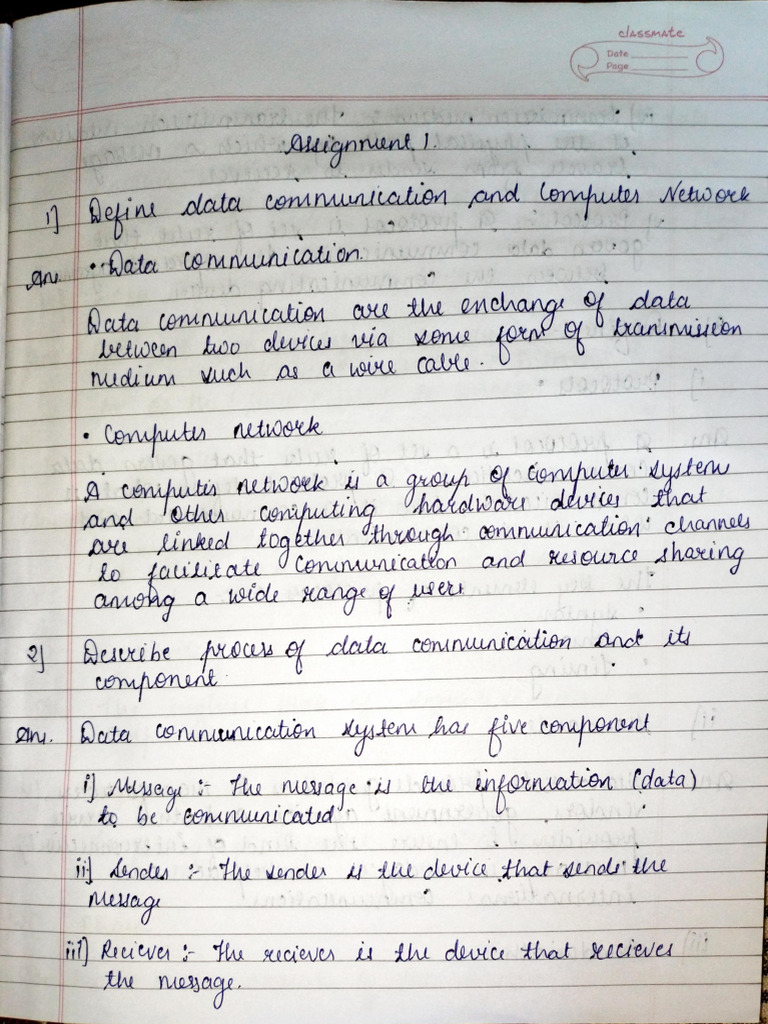 classmate
Date
Page
Assignment 1.
1] Define data communication and Computer Network
Ans. • Data communication.
Data communication are the enchange of data
between two devices via some form of transmission
medium such as a wire cable.
• Computer network
A computer network is a group of computer system
and other computing hardware devices that
are linked together through communication channels
to facilitate communication and resource sharing
among a wide range of users
2] Describe process of data communication and its
component.
Ans. Data communication system has five component
i] Message :- The message is the information (data)
to be communicated
ii] Sender :- The sender is the device that sends the
message
iii] Reciever :- The reciever is the device that recieves
the message.